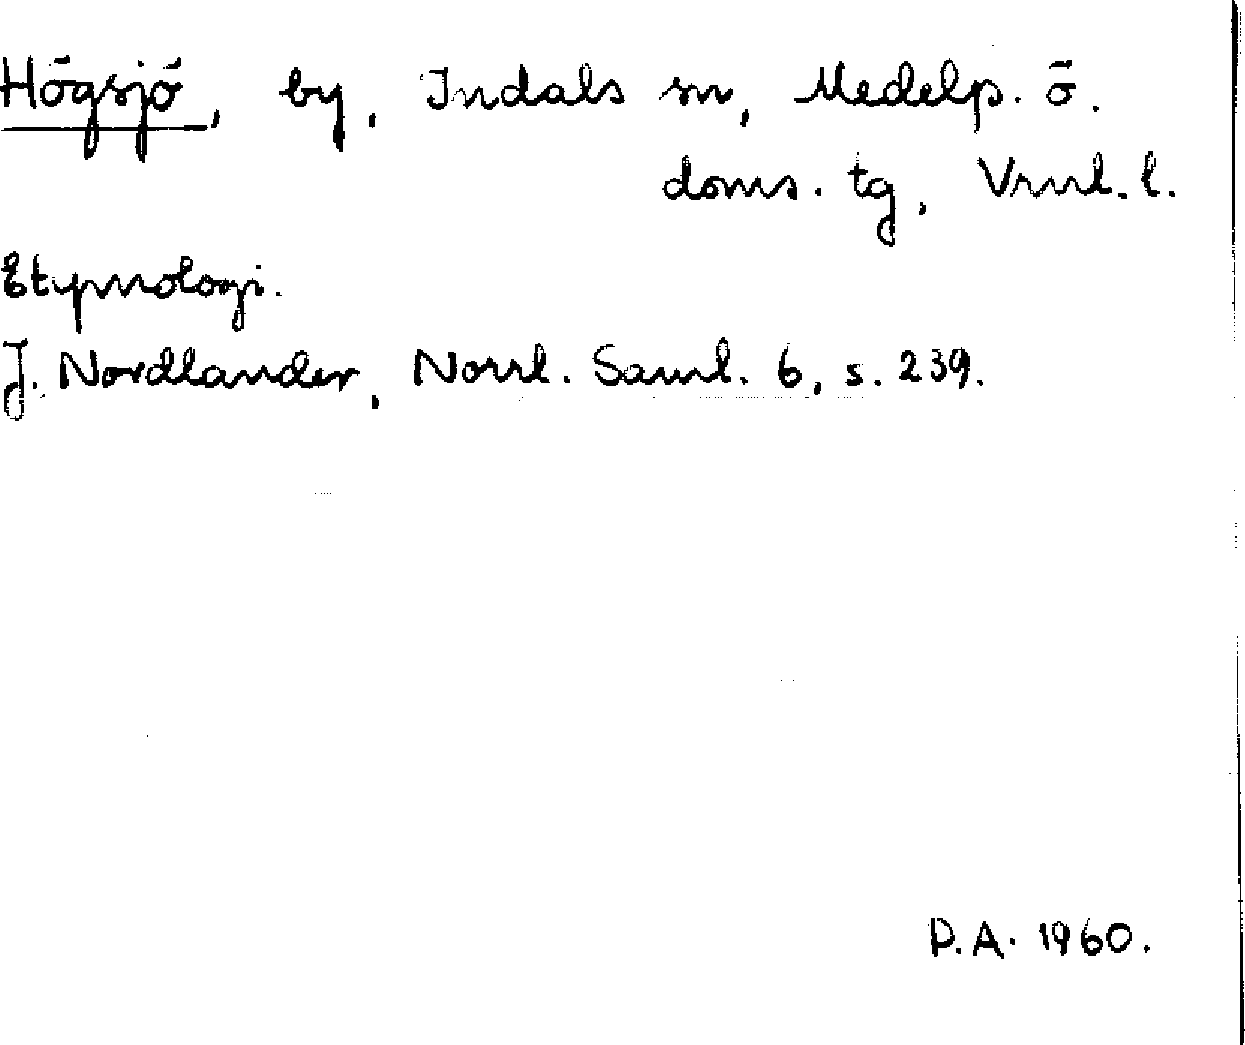 Högsjö, by, Indals sn, Medelp. ö.
doms. tg, Vrnl. l.
Etymologi.
J. Nordlander, Norrl. Saml. 6, s. 239.
D.A. 1960.